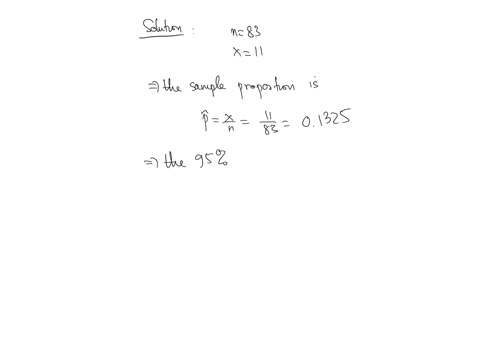 Solution :
n=83
x=11
⇒ the sample proportion is
p̂ = x/n = 11/83 = 0.1325
⇒ the 95%